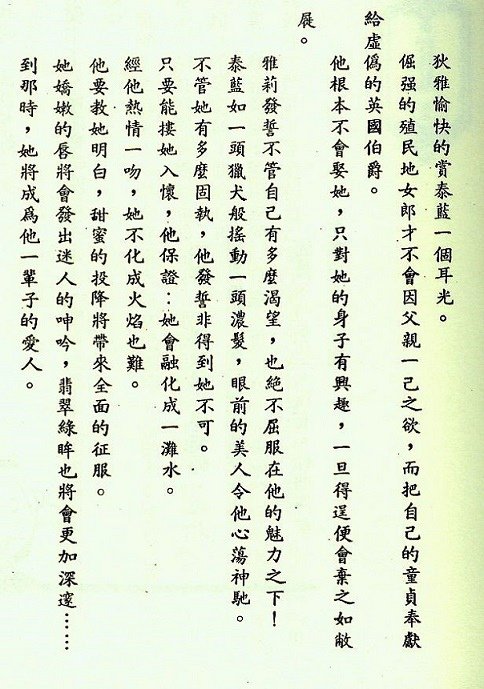 狄雅愉快的賞泰藍一個耳光。
倔强的殖民地女郎才不會因父親一己之欲，而把自己的童貞奉獻
給虛僞的英國伯爵。
他根本不會娶她，只對她的身子有興趣，一旦得逞便會棄之如敝
屣。
雅莉發誓不管自己有多麼渴望，也絕不屈服在他的魅力之下！
泰藍如一頭獵犬般搖動一頭濃髮，眼前的美人令他心蕩神馳。
不管她有多麼固執，他發誓非得到她不可。
只要能摟她入懷，他保證：她會融化成一灘水。
經他熱情一吻，她不化成火焰也難。
他要教她明白，甜蜜的投降將帶來全面的征服。
她嬌嫩的唇將會發出迷人的呻吟，翡翠綠眸也將會更加深邃……
到那時，她將成爲他一輩子的愛人。